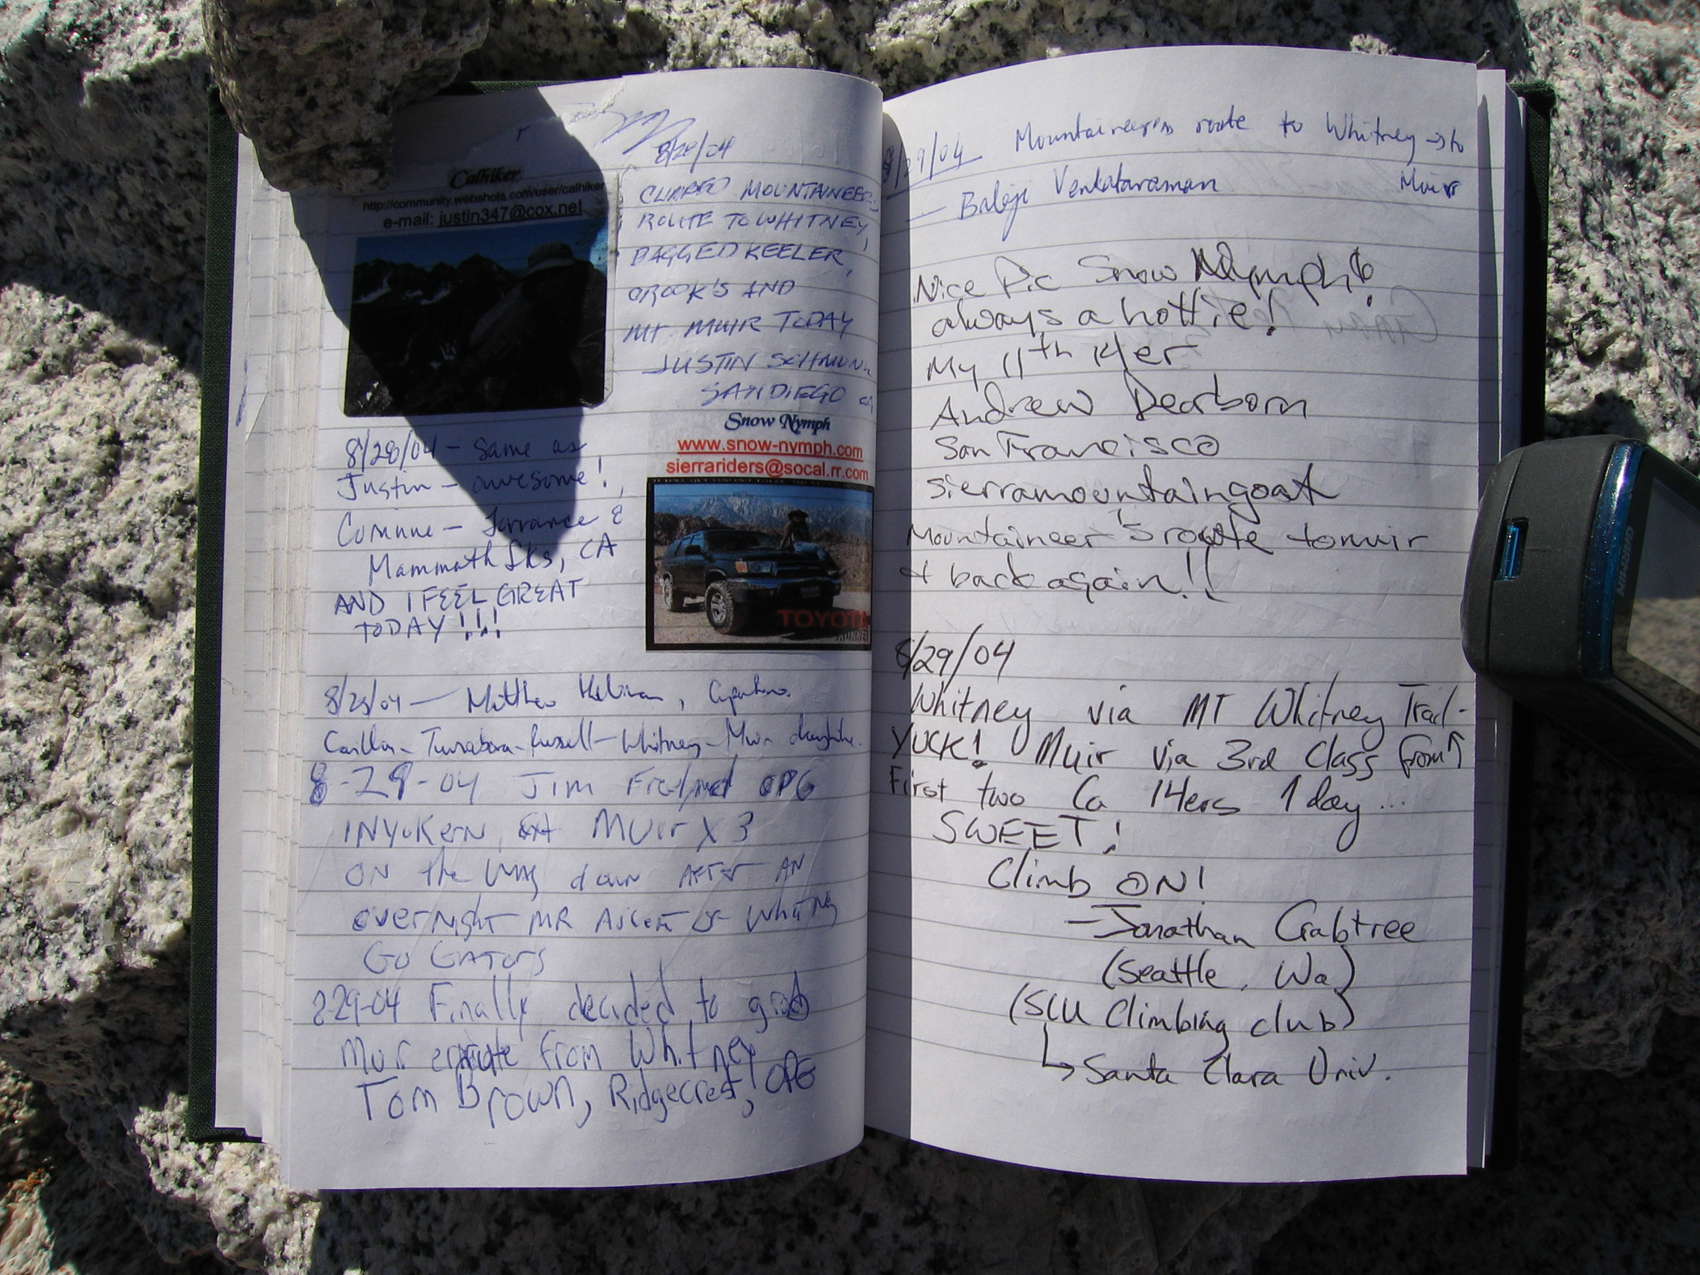 Calhiker
http://community.webshots.com/user/calhiker
e-mail: justin347@cox.net
8/28/04
CLIMBED MOUNTAINEERS
ROUTE TO WHITNEY,
BAGGED KEELER,
CROOK'S AND
MT. MUIR TODAY
JUSTIN
SAN DIEGO CA
Snow Nymph
www.snow-nymph.com
sierrariders@socal.rr.com
TOYOTA
8/28/04 - same as
Justin - awesome!,
Corinne - Torrance &
Mammoth Lks, CA
AND I FEEL GREAT
TODAY!!!
8/28/04 - Matthew
Russell - Whitney - Muir
8-29-04 Jim OPG
INYOKERN, MUIR X 3
ON the WAY down AFTER AN
OVERNIGHT MR Ascent of Whitney
GO GATORS
8-29-04 Finally decided to grab
Muir enroute from Whitney
Tom Brown, Ridgecrest, OPG
8/29/04 Mountaineers route to Whitney → to
Muir
— Balaji Venkataraman
Nice Pic Snow Nymph!
always a hottie!
My 11th 14er
Andrew Dearborn
San Francisco
sierramountaingoat
Mountaineer's route to muir
& back again!!
8/29/04
Whitney via MT Whitney Trail-
YUCK! Muir via 3rd Class from ↑
First two Ca 14ers 1 day...
SWEET!
Climb ON!
- Jonathan Crabtree
(Seattle, Wa)
(SCU Climbing club)
↳ Santa Clara Univ.
GARMIN